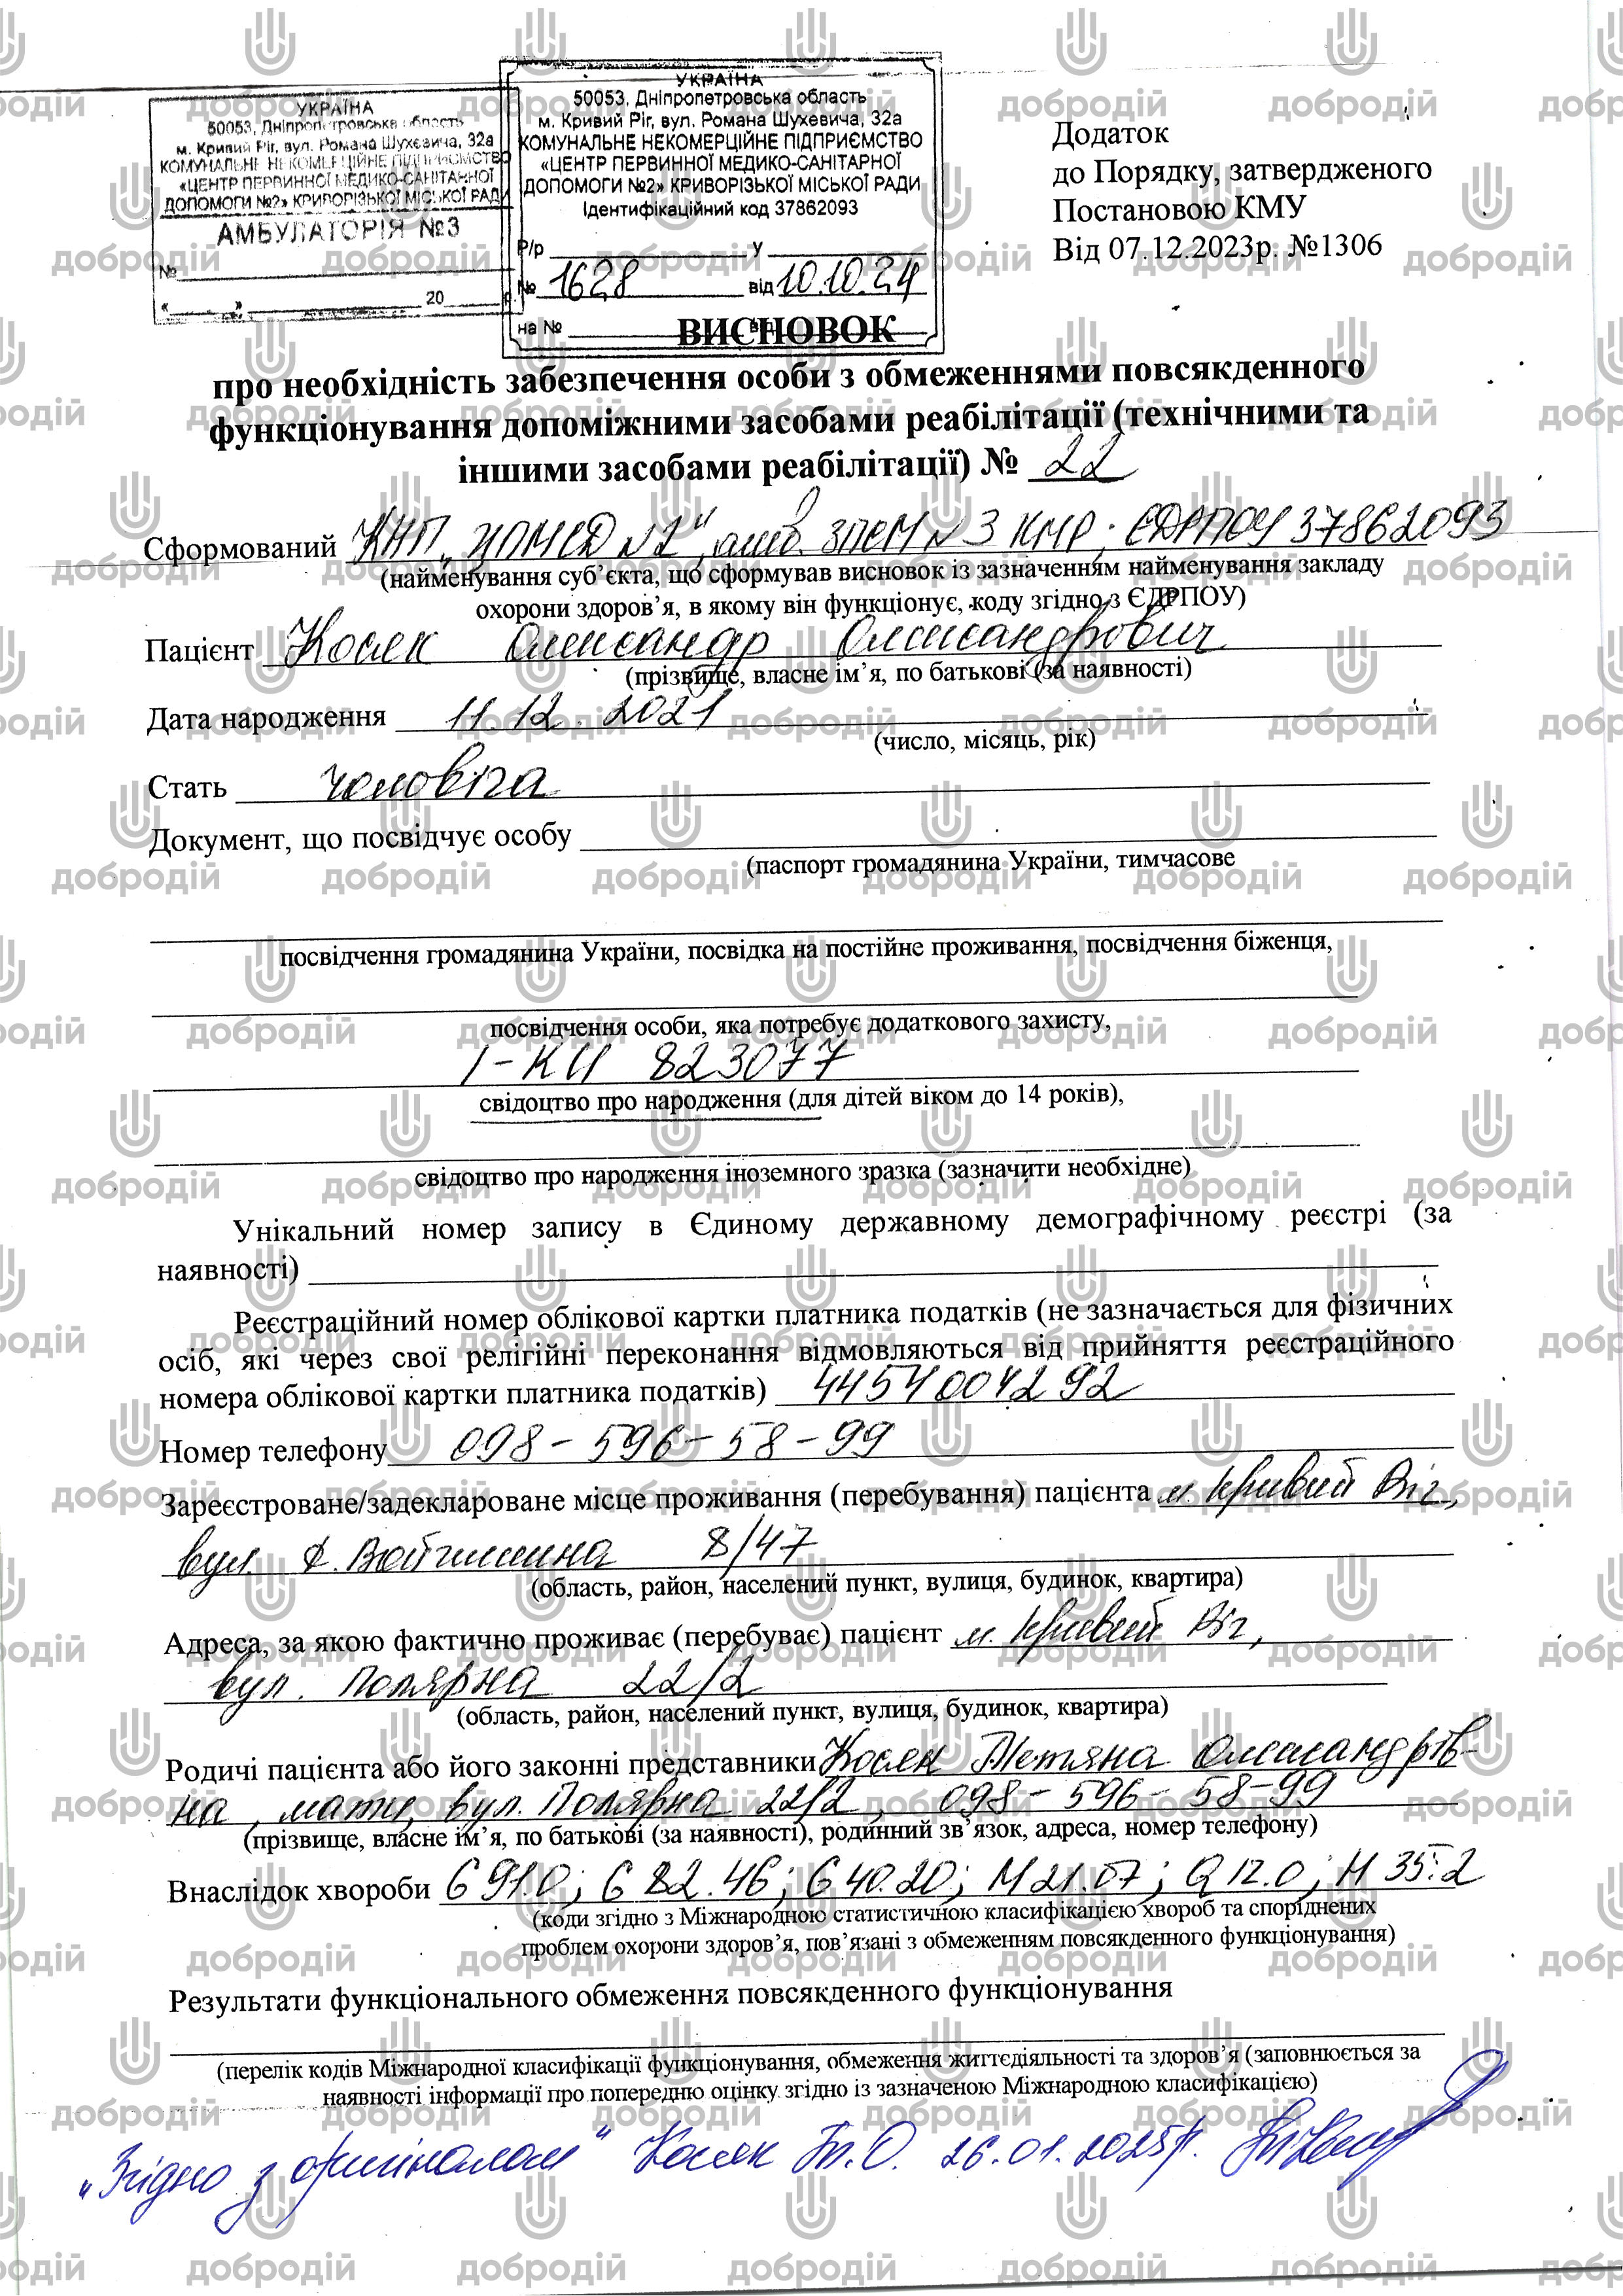 УКРАЇНА
50053, Дніпропетровська область
м. Кривий Ріг, вул. Романа Шухевича, 32а
КОМУНАЛЬНЕ НЕКОМЕРЦІЙНЕ ПІДПРИЄМСТВО
«ЦЕНТР ПЕРВИННОЇ МЕДИКО-САНІТАРНОЇ
ДОПОМОГИ №2» КРИВОРІЗЬКОЇ МІСЬКОЇ РАДИ
АМБУЛАТОРІЯ №3
№
« » 20 р.
УКРАЇНА
50053, Дніпропетровська область
м. Кривий Ріг, вул. Романа Шухевича, 32а
КОМУНАЛЬНЕ НЕКОМЕРЦІЙНЕ ПІДПРИЄМСТВО
«ЦЕНТР ПЕРВИННОЇ МЕДИКО-САНІТАРНОЇ
ДОПОМОГИ №2» КРИВОРІЗЬКОЇ МІСЬКОЇ РАДИ
Ідентифікаційний код 37862093
Р/р у
№ 1628 від 10.10.24
на № від
Додаток
до Порядку, затвердженого
Постановою КМУ
Від 07.12.2023р. №1306
ВИСНОВОК
про необхідність забезпечення особи з обмеженнями повсякденного
функціонування допоміжними засобами реабілітації (технічними та
іншими засобами реабілітації) № 22
Сформований КНП „ЦПМСД №2", амб. ЗПСМ №3 КМР; ЄДРПОУ 37862093
(найменування суб’єкта, що сформував висновок із зазначенням найменування закладу
охорони здоров’я, в якому він функціонує, коду згідно з ЄДРПОУ)
Пацієнт Косяк Олександр Олександрович
(прізвище, власне ім’я, по батькові (за наявності)
Дата народження 11.12.2021
(число, місяць, рік)
Стать чоловіча
Документ, що посвідчує особу
(паспорт громадянина України, тимчасове
посвідчення громадянина України, посвідка на постійне проживання, посвідчення біженця,
посвідчення особи, яка потребує додаткового захисту,
I-КИ 823077
свідоцтво про народження (для дітей віком до 14 років),
свідоцтво про народження іноземного зразка (зазначити необхідне)
Унікальний номер запису в Єдиному державному демографічному реєстрі (за
наявності)
Реєстраційний номер облікової картки платника податків (не зазначається для фізичних
осіб, які через свої релігійні переконання відмовляються від прийняття реєстраційного
номера облікової картки платника податків) 4454004292
Номер телефону 098-596-58-99
Зареєстроване/задеклароване місце проживання (перебування) пацієнта м. Кривий Ріг,
вул. 8/47
(область, район, населений пункт, вулиця, будинок, квартира)
Адреса, за якою фактично проживає (перебуває) пацієнт м. Кривий Ріг,
вул. Полярна 22/2
(область, район, населений пункт, вулиця, будинок, квартира)
Родичі пацієнта або його законні представники Косяк Тетяна Олександрів-
на, мати, вул. Полярна 22/2, 098-596-58-99
(прізвище, власне ім’я, по батькові (за наявності), родинний зв’язок, адреса, номер телефону)
Внаслідок хвороби G 91.0; G 82.46; G 40.20; M 21.07; Q 12.0; H 35.2
(коди згідно з Міжнародною статистичною класифікацією хвороб та споріднених
проблем охорони здоров’я, пов’язані з обмеженням повсякденного функціонування)
Результати функціонального обмеження повсякденного функціонування
(перелік кодів Міжнародної класифікації функціонування, обмеження життєдіяльності та здоров’я (заповнюється за
наявності інформації про попередню оцінку згідно із зазначеною Міжнародною класифікацією)
„Згідно з оригіналом" Косяк Т.О. 26.01.2025р.
добродій